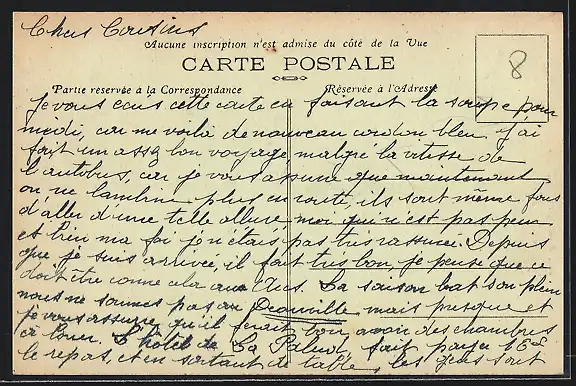 Chers Cousins
Aucune inscription n'est admise du côté de la Vue
CARTE POSTALE
Partie réservée à la Correspondance
Réservée à l'Adresse
8
Je vous écris cette carte en faisant la soupe pour
midi, car me voilà de nouveau cordon bleu j'ai
fait un assez bon voyage malgré la vitesse de
l'autobus, car je vous assure que maintenant
on ne lambine plus en route, ils sont même fous
d'aller d'une telle allure moi qui n'est pas peur
et bien ma foi je n'étais pas très rassurée. Depuis
que je suis arrivée, il fait très bon, je pense que ce
doit être comme cela aux Arcs. La saison bat son plein
nous ne sommes pas à Deauville mais presque et
je vous assure qu'il ferait bon avoir des chambres
à louer. L'hôtel de La Palud fait payer 15
le repas, et en sortant de table, les gens sont